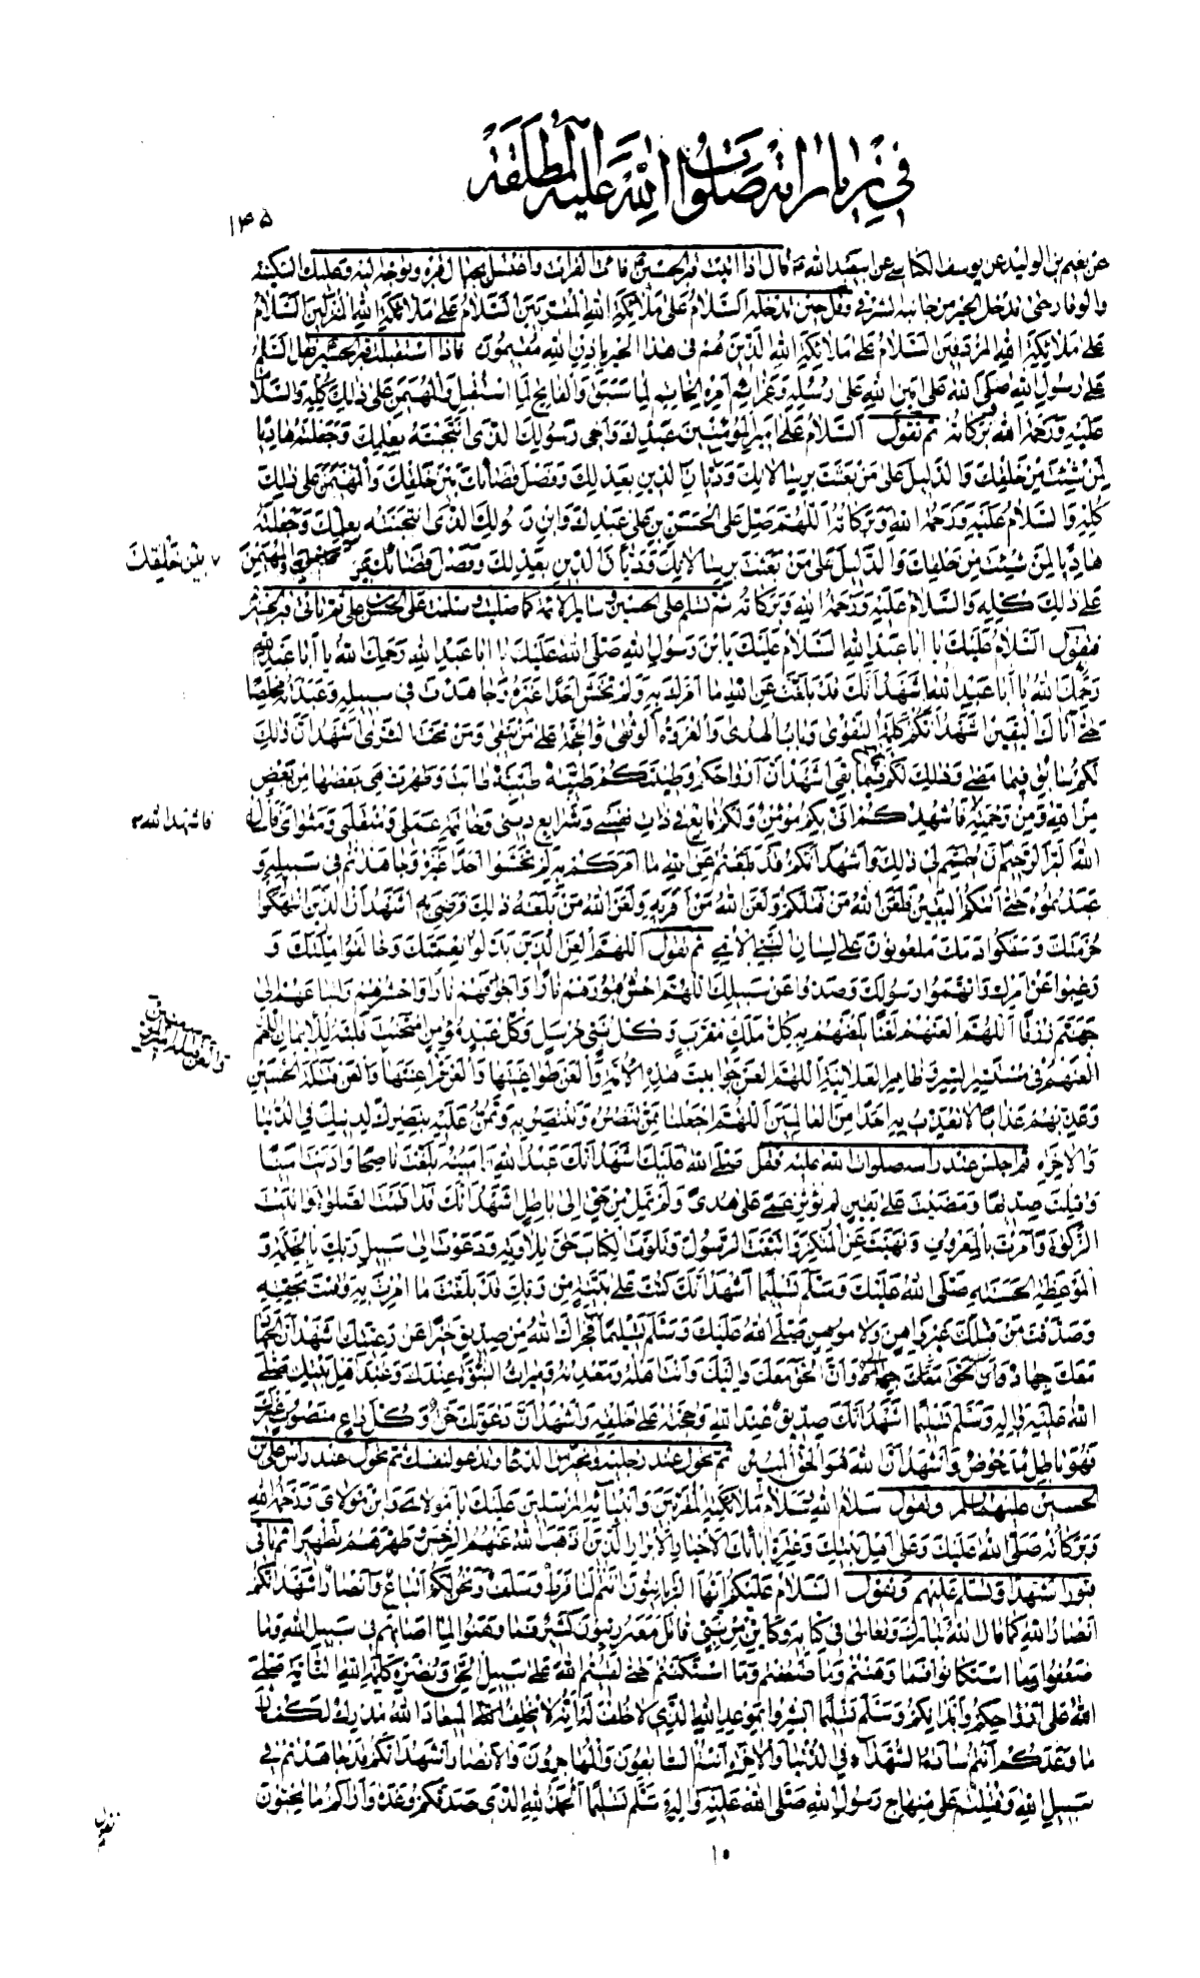 في زياراته صلوات الله عليه المطلقة
١٤٥
عن نعيم بن الوليد عن يوسف الكناسي عن ابيعبد الله ع قال اذا اتيت قبر الحسين فائت الفرات واغتسل بحيال قبره وتوجه اليه وعليك السكينة
والوقار حتى تدخل الحير من جانبه الشرقي وقل حين تدخله السَّلامُ عَلى مَلائِكَةِ اللهِ المُقَرَّبينَ السَّلامُ عَلى مَلائِكَةِ اللهِ المُنْزَلينَ السَّلامُ
عَلى مَلائِكَةِ اللهِ المُرْدِفينَ السَّلامُ عَلى مَلائِكَةِ اللهِ الَّذينَ هُمْ في هذا الحَيْرِ بِإذْنِ اللهِ مُقيمُونَ فاذا استقبلت قبر الحسين فقل السَّلامُ
عَلى رَسُولِ اللهِ صَلَّى اللهُ عَلى اَمينِ اللهِ عَلى رُسُلِهِ وَعَزائِمِ اَمْرِهِ الخاتِمِ لِما سَبَقَ وَالفاتِحِ لِمَا اسْتُقْبِلَ وَالمُهَيْمِنِ عَلى ذلِكَ كُلِّهِ وَالسَّلامُ
عَلَيْهِ وَرَحْمَةُ اللهِ وَبَرَكاتُهُ ثم تقول السَّلامُ عَلى اَميرِ المُؤْمِنينَ عَبْدِكَ وَاَخي رَسُولِكَ الَّذي انْتَجَبْتَهُ بِعِلْمِكَ وَجَعَلْتَهُ هادِيًا
لِمَنْ شِئْتَ مِنْ خَلْقِكَ وَالدَّليلَ عَلى مَنْ بَعَثْتَ بِرِسالاتِكَ وَدَيّانِ الدّينِ بِعَدْلِكَ وَفَصْلِ قَضائِكَ بَيْنَ خَلْقِكَ وَالمُهَيْمِنَ عَلى ذلِكَ
كُلِّهِ وَالسَّلامُ عَلَيْهِ وَرَحْمَةُ اللهِ وَبَرَكاتُهُ اَللّهُمَّ صَلِّ عَلَى الحَسَنِ بْنِ عَلِيٍّ عَبْدِكَ وَابْنِ رَسُولِكَ الَّذي انْتَجَبْتَهُ بِعِلْمِكَ وَجَعَلْتَهُ
هادِيًا لِمَنْ شِئْتَ مِنْ خَلْقِكَ وَالدَّليلَ عَلى مَنْ بَعَثْتَ بِرِسالاتِكَ وَدَيّانَ الدّينِ بِعَدْلِكَ وَفَصْلِ قَضائِكَ وَالمُهَيْمِنَ
بَيْنَ خَلْقِكَ
عَلى ذلِكَ كُلِّهِ وَالسَّلامُ عَلَيْهِ وَرَحْمَةُ اللهِ وَبَرَكاتُهُ ثم تسلم على الحسين وسائر الائمة كما صليت وسلمت على الحسن بن علي ثم تاتي قبر الحسين
فتقول السَّلامُ عَلَيْكَ يا اَبا عَبْدِ اللهِ السَّلامُ عَلَيْكَ يَا بْنَ رَسُولِ اللهِ صَلَّى اللهُ عَلَيْكَ يا اَبا عَبْدِ اللهِ رَحِمَكَ اللهُ يا اَبا عَبْدِ اللهِ
رَحِمَكَ اللهُ يا اَبا عَبْدِ اللهِ اَشْهَدُ اَنَّكَ قَدْ بَلَّغْتَ عَنِ اللهِ ما اَمَرَكَ بِهِ وَلَمْ تَخْشَ اَحَدًا غَيْرَهُ وَجاهَدْتَ في سَبيلِهِ وَعَبَدْتَهُ مُخْلِصًا
حَتّى اَتاكَ اليَقينُ اَشْهَدُ اَنَّكُمْ كَلِمَةُ التَّقْوى وَبابُ الهُدى وَالعُرْوَةُ الوُثْقى وَالحُجَّةُ عَلى مَنْ يَبْقى وَمَنْ تَحْتَ الثَّرى اَشْهَدُ اَنَّ ذلِكَ
لَكُمْ سابِقٌ فيما مَضى وَذلِكَ لَكُمْ فيما بَقِيَ اَشْهَدُ اَنَّ اَرْواحَكُمْ وَطينَتَكُمْ طَيِّبَةٌ طابَتْ وَطَهُرَتْ هِيَ بَعْضُها مِنْ بَعْضٍ
مِنَ اللهِ وَمِنْ رَحْمَتِهِ فَاُشْهِدُكُمْ اَنّي بِكُمْ مُؤْمِنٌ وَلَكُمْ تابِعٌ في ذاتِ نَفْسي وَشَرائِعِ ديني وَخاتِمَةِ عَمَلي وَمُنْقَلَبي وَمَثْوايَ
فاشهد الله
اللهَ البَرَّ الرَّحيمَ اَنْ يُتَمِّمَ لي ذلِكَ وَاَشْهَدُ اَنَّكُمْ قَدْ بَلَّغْتُمْ عَنِ اللهِ ما اَمَرَكُمْ بِهِ لَمْ تَخْشَوْا اَحَدًا غَيْرَهُ وَجاهَدْتُمْ في سَبيلِهِ وَ
عَبَدْتُمُوهُ حَتّى اَتاكُمُ اليَقينُ فَلَعَنَ اللهُ مَنْ قَتَلَكُمْ وَلَعَنَ اللهُ مَنْ اَمَرَ بِهِ وَلَعَنَ اللهُ مَنْ بَلَغَهُ ذلِكَ فَرَضِيَ بِهِ اَشْهَدُ اَنَّ الَّذينَ انْتَهَكُوا
حُرْمَتَكَ وَسَفَكُوا دَمَكَ مَلْعُونُونَ عَلى لِسانِ النَّبِيِّ الاُمِّيِّ ثم تقول اَللّهُمَّ العَنِ الَّذينَ بَدَّلُوا نِعْمَتَكَ وَخالَفُوا مِلَّتَكَ وَ
رَغِبُوا عَنْ اَمْرِكَ وَاتَّهَمُوا رَسُولَكَ وَصَدُّوا عَنْ سَبيلِكَ اَللّهُمَّ احْشُ قُبُورَهُمْ نارًا وَاَجْوافَهُمْ نارًا وَاحْشُرْهُمْ وَاَشْياعَهُمْ اِلى
جَهَنَّمَ زُرْقًا اَللّهُمَّ العَنْهُمْ لَعْنًا يَلْعَنُهُمْ بِهِ كُلُّ مَلَكٍ مُقَرَّبٍ وَكُلُّ نَبِيٍّ مُرْسَلٍ وَكُلُّ عَبْدٍ مُؤْمِنٍ امْتَحَنْتَ قَلْبَهُ لِلايمانِ اَللّهُمَّ
العَنْهُمْ في مُسْتَسِرِّ السِّرِّ وَظاهِرِ العَلانِيَةِ اَللّهُمَّ العَنْ جَوابيتَ هذِهِ الاُمَّةِ وَالعَنْ طَواغيتَها وَالعَنْ فَراعِنَتَها وَالعَنْ قَتَلَةَ الحُسَيْنِ
وَعَذِّبْهُمْ عَذابًا لا تُعَذِّبُ بِهِ اَحَدًا مِنَ العالَمينَ اَللّهُمَّ اجْعَلْنا مِمَّنْ تَنْصُرُهُ وَتَنْتَصِرُ بِهِ وَتَمُنُّ عَلَيْهِ بِنَصْرِكَ لِدينِكَ فِي الدُّنْيا
وَالاخِرَةِ ثم اجلس عند راسه صلوات الله عليه فقل صَلَّى اللهُ عَلَيْكَ اَشْهَدُ اَنَّكَ عَبْدُ اللهِ وَاَمينُهُ بَلَّغْتَ ناصِحًا وَاَدَّيْتَ اَمينًا
وَقُتِلْتَ صِدّيقًا وَمَضَيْتَ عَلى يَقينٍ لَمْ تُؤْثِرْ عَمًى عَلى هُدًى وَلَمْ تَمِلْ مِنْ حَقٍّ اِلى باطِلٍ اَشْهَدُ اَنَّكَ قَدْ اَقَمْتَ الصَّلوةَ وَاتَيْتَ
الزَّكوةَ وَاَمَرْتَ بِالمَعْرُوفِ وَنَهَيْتَ عَنِ المُنْكَرِ وَاتَّبَعْتَ الرَّسُولَ وَتَلَوْتَ الكِتابَ حَقَّ تِلاوَتِهِ وَدَعَوْتَ اِلى سَبيلِ رَبِّكَ بِالحِكْمَةِ وَ
المَوْعِظَةِ الحَسَنَةِ صَلَّى اللهُ عَلَيْكَ وَسَلَّمَ تَسْليمًا اَشْهَدُ اَنَّكَ كُنْتَ عَلى بَيِّنَةٍ مِنْ رَبِّكَ قَدْ بَلَّغْتَ ما اُمِرْتَ بِهِ وَقُمْتَ بِحَقِّهِ
وَصَدَّقْتَ مَنْ قَبْلَكَ غَيْرَ واهِنٍ وَلا مُوهِنٍ صَلَّى اللهُ عَلَيْكَ وَسَلَّمَ تَسْليمًا فَجَزاكَ اللهُ مِنْ صِدّيقٍ خَيْرًا عَنْ رَعِيَّتِكَ اَشْهَدُ اَنَّ الجِهادَ
مَعَكَ جِهادٌ وَاَنَّ الحَقَّ مَعَكَ وَاِلَيْكَ وَاَنْتَ اَهْلُهُ وَمَعْدِنُهُ وَميراثَ النُّبُوَّةِ عِنْدَكَ وَعِنْدَ اَهْلِ بَيْتِكَ صَلَّى
اللهُ عَلَيْهِ وَالِهِ وَسَلَّمَ تَسْليمًا اَشْهَدُ اَنَّكَ صِدّيقٌ عِنْدَ اللهِ وَحُجَّتُهُ عَلى خَلْقِهِ وَاَشْهَدُ اَنَّ دَعْوَتَكَ حَقٌّ وَكُلَّ داعٍ مَنْصُوبٍ غَيْرِكَ
فَهُوَ باطِلٌ مَدْحُوضٌ وَاَشْهَدُ اَنَّ اللهَ هُوَ الحَقُّ المُبينُ ثم تحول عند رجليه وتخير من الدعاء وتدعو لنفسك ثم تحول عند راس علي بن
الحسين عليهما السلم وتقول سَلامُ اللهِ وَسَلامُ مَلائِكَتِهِ المُقَرَّبينَ وَاَنْبِيائِهِ المُرْسَلينَ عَلَيْكَ يا مَوْلايَ وَابْنَ مَوْلايَ وَرَحْمَةُ اللهِ
وَبَرَكاتُهُ صَلَّى اللهُ عَلَيْكَ وَعَلى اَهْلِ بَيْتِكَ وَعِتْرَةِ ابائِكَ الاَخْيارِ الاَبْرارِ الَّذينَ اَذْهَبَ اللهُ عَنْهُمُ الرِّجْسَ وَطَهَّرَهُمْ تَطْهيرًا ثم تاتي
قبور الشهداء وتسلم عليهم وتقول السَّلامُ عَلَيْكُمْ اَيُّهَا الرَّبّانِيُّونَ اَنْتُمْ لَنا فَرَطٌ وَسَلَفٌ وَنَحْنُ لَكُمْ اَتْباعٌ وَاَنْصارٌ اَشْهَدُ اَنَّكُمْ
اَنْصارُ اللهِ كَما قالَ اللهُ تَبارَكَ وَتَعالى في كِتابِهِ وَكَاَيِّنْ مِنْ نَبِيٍّ قاتَلَ مَعَهُ رِبِّيُّونَ كَثيرٌ فَما وَهَنُوا لِما اَصابَهُمْ في سَبيلِ اللهِ وَما
ضَعُفُوا وَمَا اسْتَكانُوا فَما وَهَنْتُمْ وَما ضَعُفْتُمْ وَمَا اسْتَكَنْتُمْ حَتّى لَقيتُمُ اللهَ عَلى سَبيلِ الحَقِّ وَنُصْرَةِ كَلِمَةِ اللهِ التّامَّةِ صَلَّى
اللهُ عَلى اَرْواحِكُمْ وَاَبْدانِكُمْ وَسَلَّمَ تَسْليمًا اَبْشِرُوا بِمَوْعِدِ اللهِ الَّذي لا خُلْفَ لَهُ اِنَّهُ لا يُخْلِفُ الميعادَ اللهُ مُدْرِكٌ لَكُمْ ثارَ
ما وَعَدَكُمْ اَنْتُمْ سادَةُ الشُّهَداءِ فِي الدُّنْيا وَالاخِرَةِ اَنْتُمُ السّابِقُونَ وَالمُهاجِرُونَ وَالاَنْصارُ اَشْهَدُ اَنَّكُمْ قَدْ جاهَدْتُمْ في
سَبيلِ اللهِ وَقُتِلْتُمْ عَلى مِنْهاجِ رَسُولِ اللهِ صَلَّى اللهُ عَلَيْهِ وَالِهِ وَسَلَّمَ تَسْليمًا اَلْحَمْدُ لِلّهِ الَّذي صَدَقَكُمْ وَعْدَهُ وَاَراكُمْ ما تُحِبُّونَ
تقول
١٠